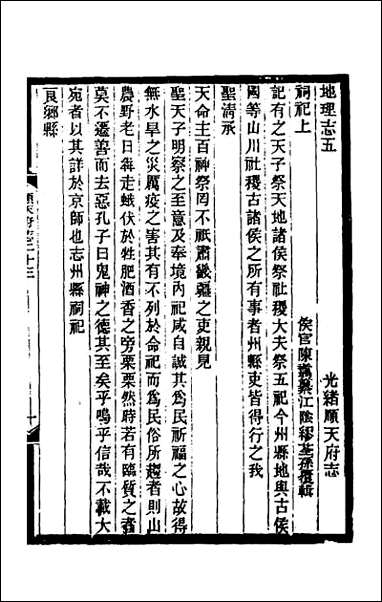 地理志五　光緒順天府志
祠祀上　侯官陳　纂江陰繆荃孫覆輯
記有之天子祭天地諸侯祭社稷大夫祭五祀今州縣地與古侯
國等山川社稷古諸侯之所有事者州縣吏皆得行之我
聖清承
天命主百神祭罔不祇肅畿疆之吏親見
聖天子明察之至意及奉境內祀咸自誠其為民祈福之心故得
無水旱之災厲疫之害其有不列於命祀而為民俗所趨者則山
農野老日犇走蛾伏於牲肥酒香之旁栗栗然時若有臨質之者
莫不遷善而去惡孔子曰鬼神之德其至矣乎嗚乎信哉不載大
宛者以其詳於京師也志州縣祠祀
良鄉縣
順天府志二十三